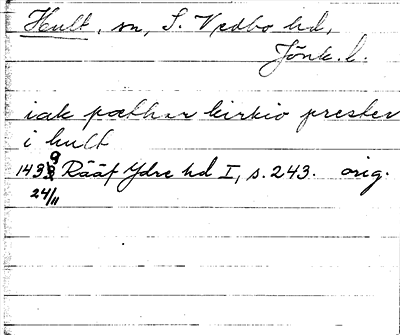 Hult, sn, S. Vedbo hd,
Jönk. l.
iak pæthar kirkio prester
i hult
1439 Rääf Ydre hd I, s. 243. orig.
24/11